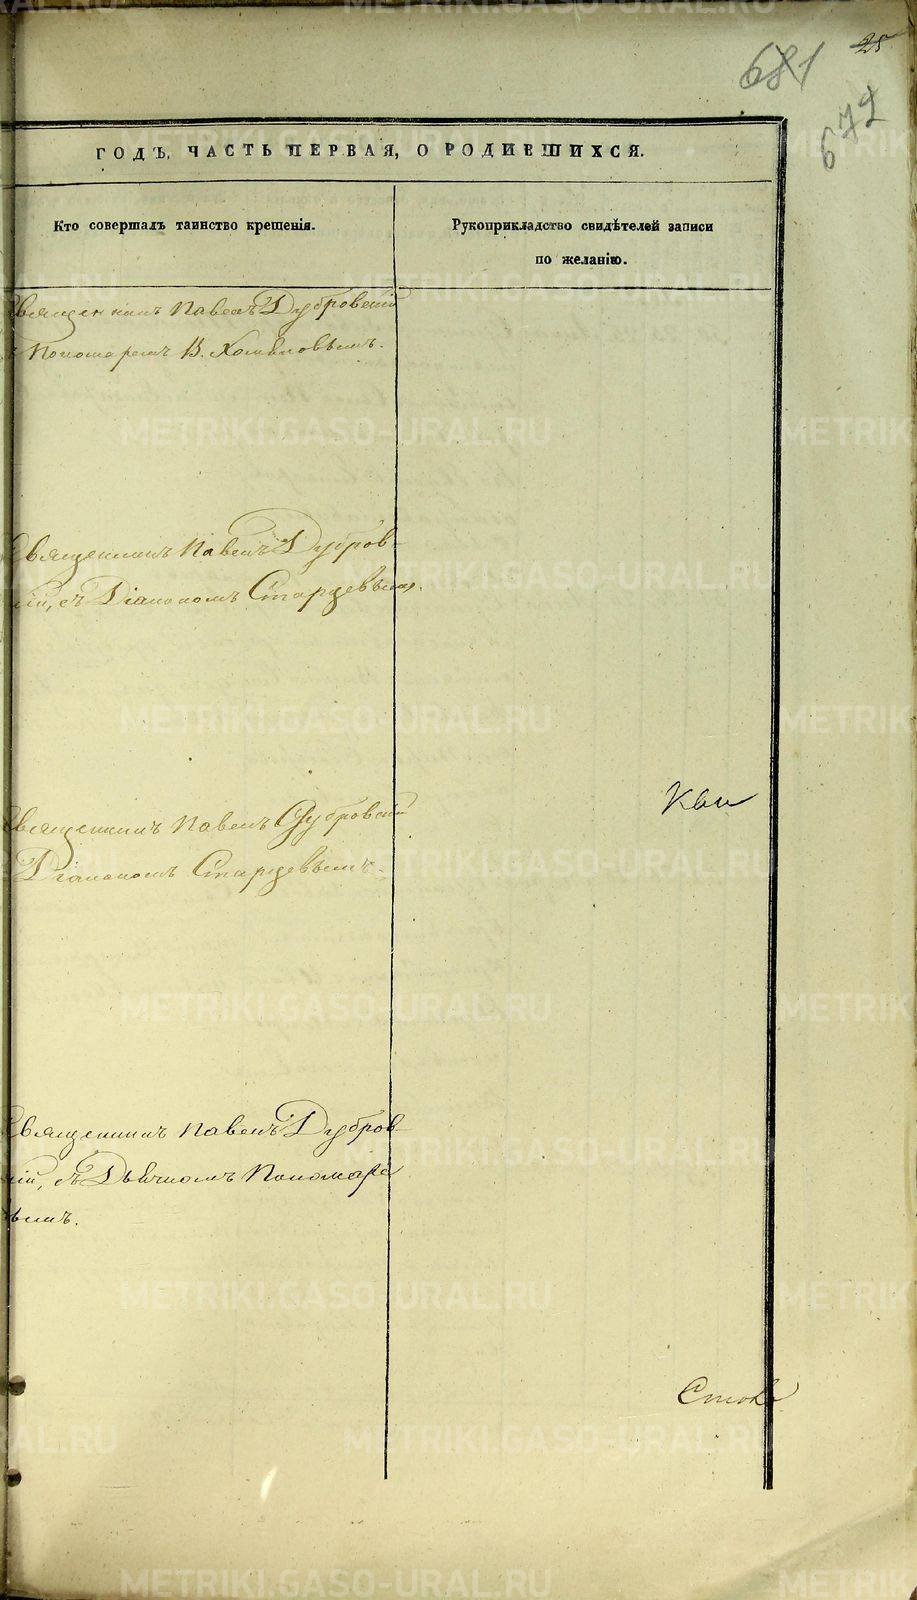 25
681
672
ГОДЪ, ЧАСТЬ ПЕРВАЯ, О РОДИВШИХСЯ.
Кто совершалъ таинство крещенія.
Рукоприкладство свидѣтелей записи
по желанію.
Священникъ Павелъ Дубровскій
Пономаремъ В.
Священникъ Павелъ Дубров-
кій, съ Діакономъ Старцевымъ.
Священникъ Павелъ Дубровскій
Діакономъ Старцевымъ.
Священникъ Павелъ Дубров
кій, съ Дьячкомъ Пономаре
вымъ.
METRIKI.GASO-URAL.RU